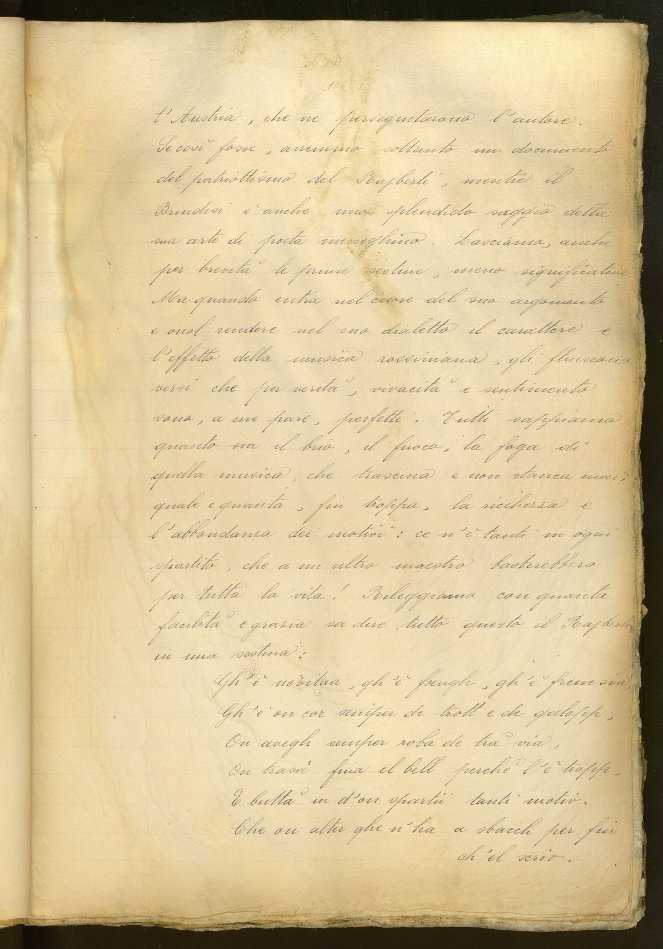 l'Austria, che ne perseguitarono l'autore.
Se così fosse, avremmo soltanto un documento
del patriottismo del Rajberti, mentre il
Brindisi è anche uno splendido saggio della
sua arte di poeta meneghino. Lasciamo, anche
per brevità le prime sestine, meno significative
Ma quando entra nel cuore del suo argomento
e vuol rendere nel suo dialetto il carattere e
l'effetto della musica rossiniana, gli fluiscono
versi che per verità, vivacità e sentimento
sono, a me pare, perfetti. Tutti sappiamo
quanto sia il brio, il fuoco, la foga di
quella musica, che trascina e non stanca mai:
quale e quanta, fin troppa, la ricchezza e
l'abbondanza dei motivi: ce n'è tanti in ogni
spartito, che a un altro maestro basterebbero
per tutta la vita! Rileggiamo con quanta
facilità e grazia sa dire tutto questo il Rajberti
in una sestina:
Gh'è novitaa, gh'è foeugh, gh'è frenesia,
Gh'è on cor semper de trott e de galopp,
On avegh semper roba de trà via,
On trasà fina el bell perchè l'è tropp,
E buttà in d'on spartii tanti motiv.
Che on alter ghe n'ha a sbacch per fin
ch'el scriv.